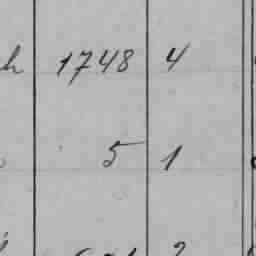 1748 4
5 1